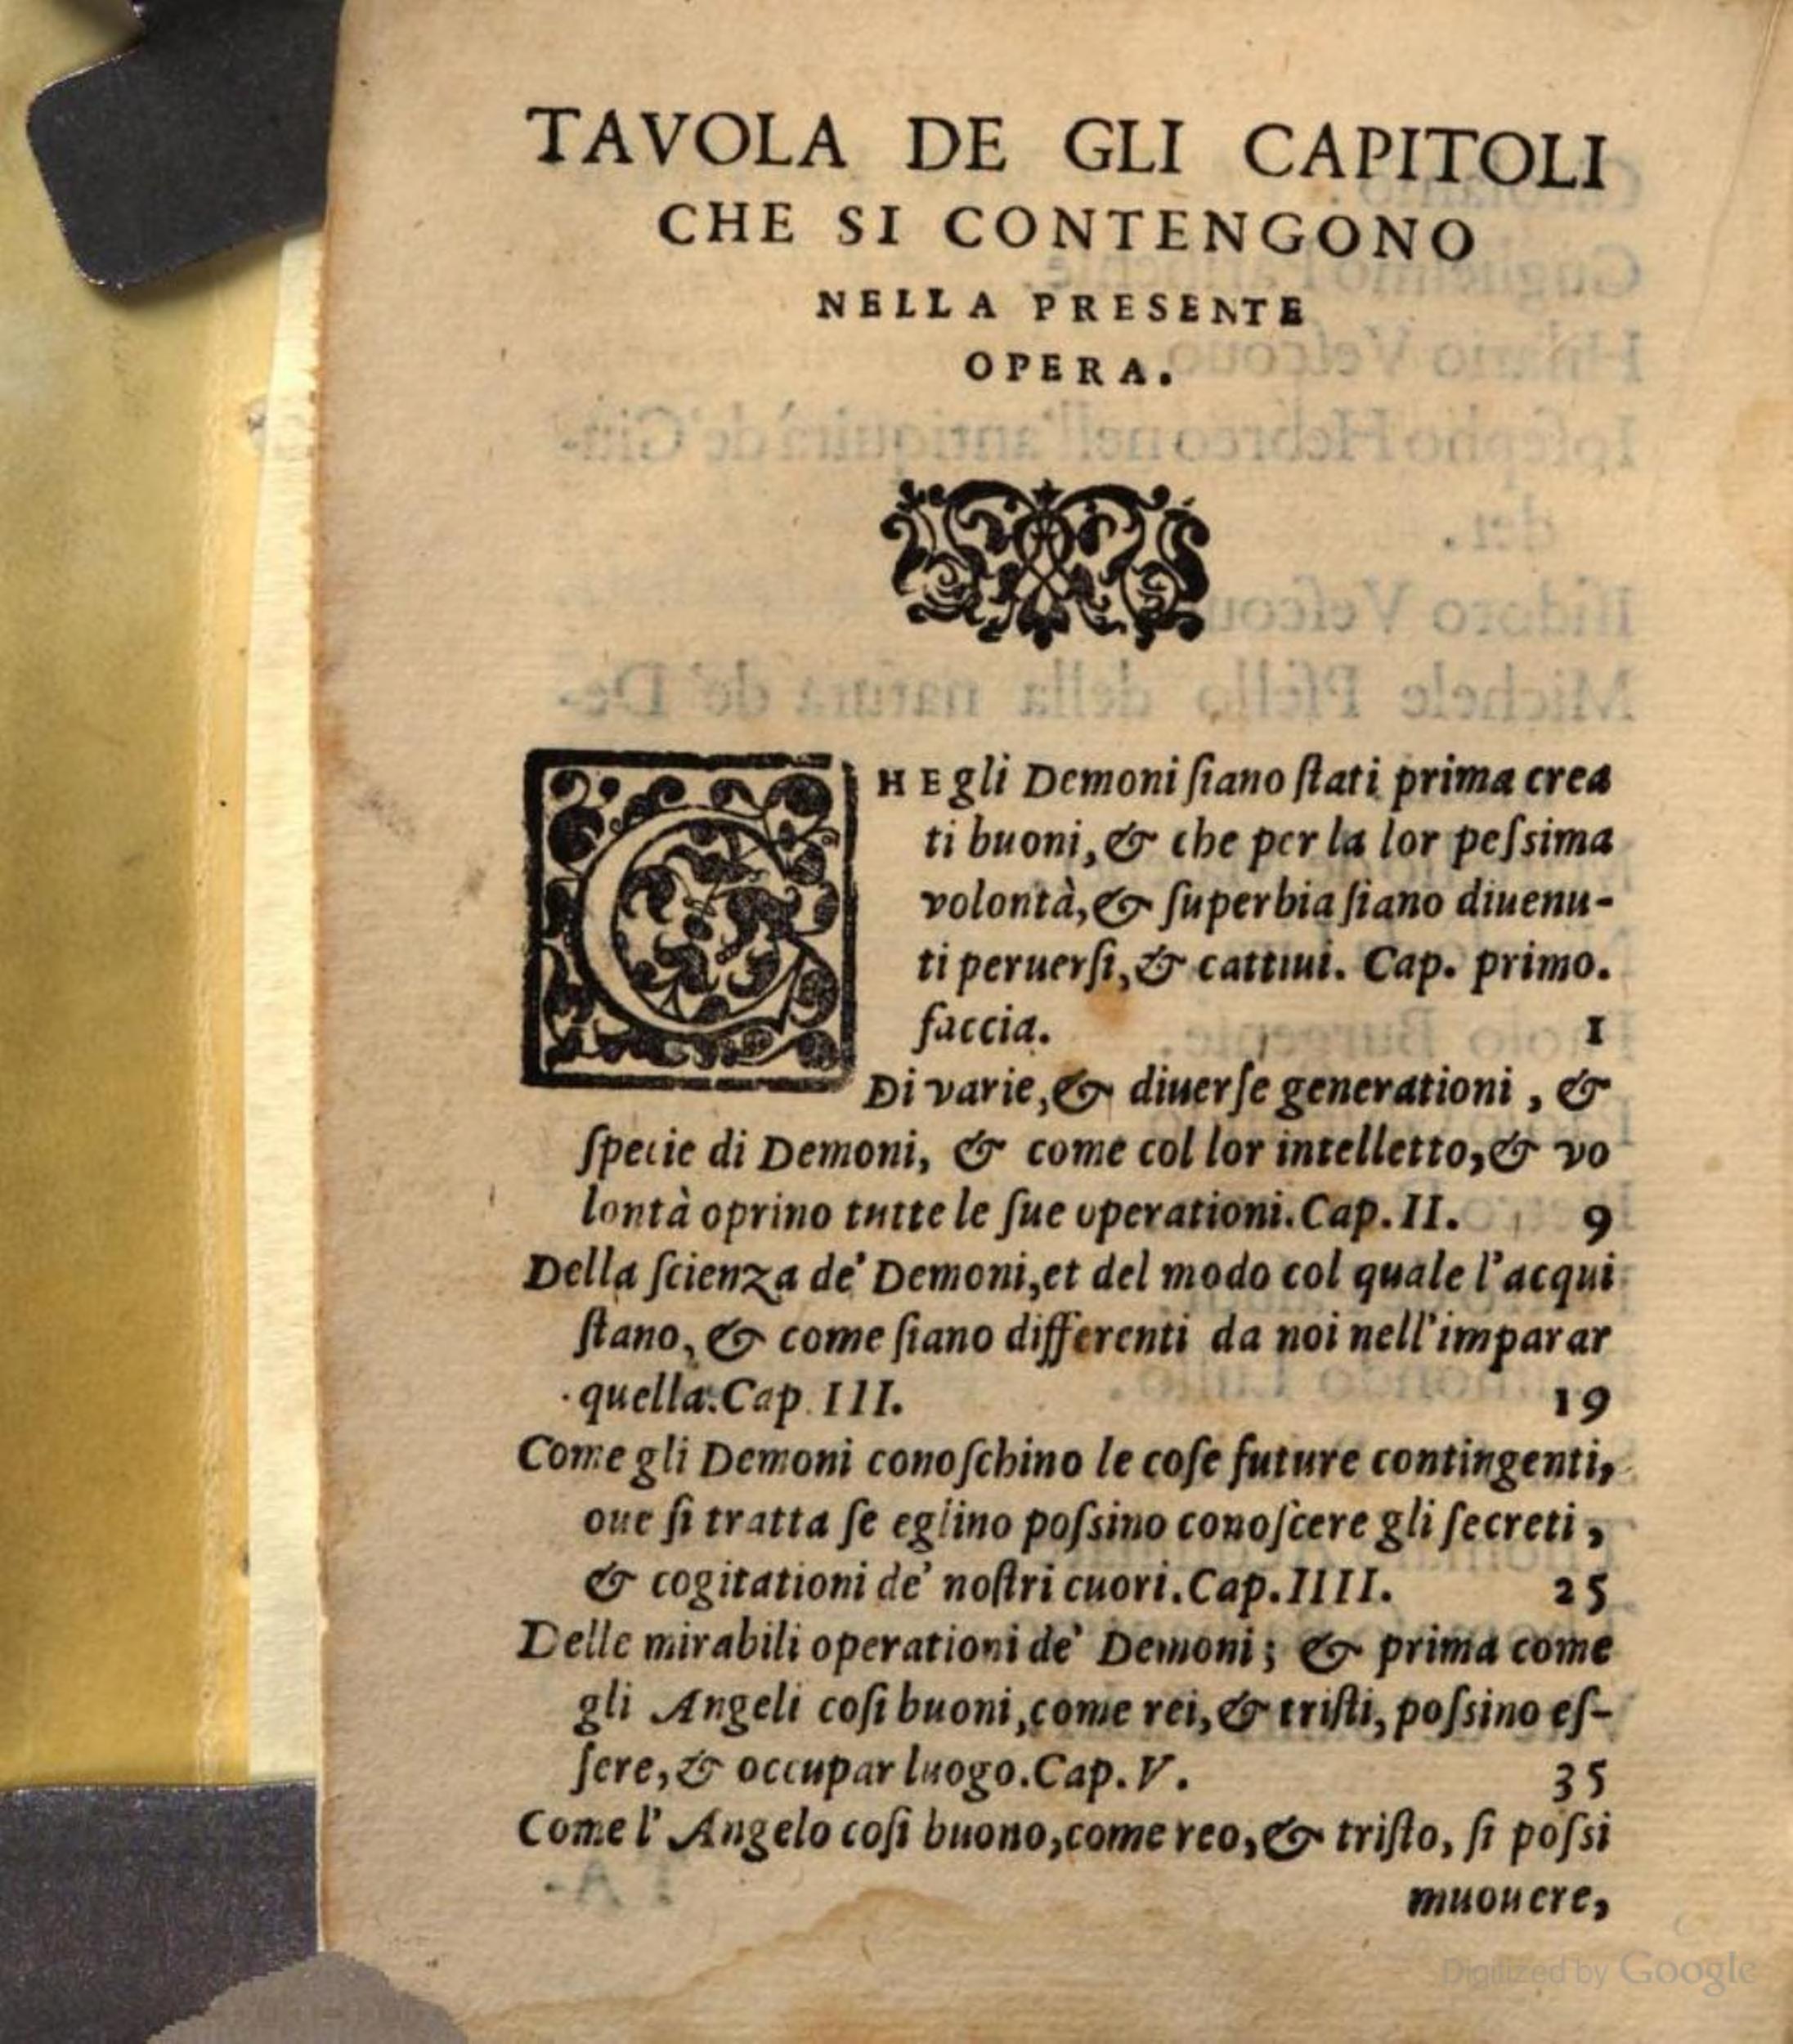 TAVOLA DE GLI CAPITOLI
CHE SI CONTENGONO
NELLA PRESENTE
OPERA.
CHE gli Demoni ſiano ſtati prima crea
ti buoni, & che per la lor peſsima
volontà, & ſuperbia ſiano diuenu-
ti peruerſi, & cattiui. Cap. primo.
faccia. 1
Di varie, & diuerſe generationi, &
ſpecie di Demoni, & come col lor intelletto, & vo
lontà oprino tutte le ſue operationi. Cap. II. 9
Della ſcienza de' Demoni, et del modo col quale l'acqui
ſtano, & come ſiano differenti da noi nell'imparar
quella. Cap. III. 19
Come gli Demoni conoſchino le coſe future contingenti,
oue ſi tratta ſe eglino poſsino conoſcere gli ſecreti,
& cogitationi de' noſtri cuori. Cap. IIII. 25
Delle mirabili operationi de' Demoni; & prima come
gli Angeli coſi buoni, come rei, & triſti, poſsino eſ-
ſere, & occupar luogo. Cap. V. 35
Come l'Angelo coſi buono, come reo, & triſto, ſi poſsi
muouere,
Digitized by Google